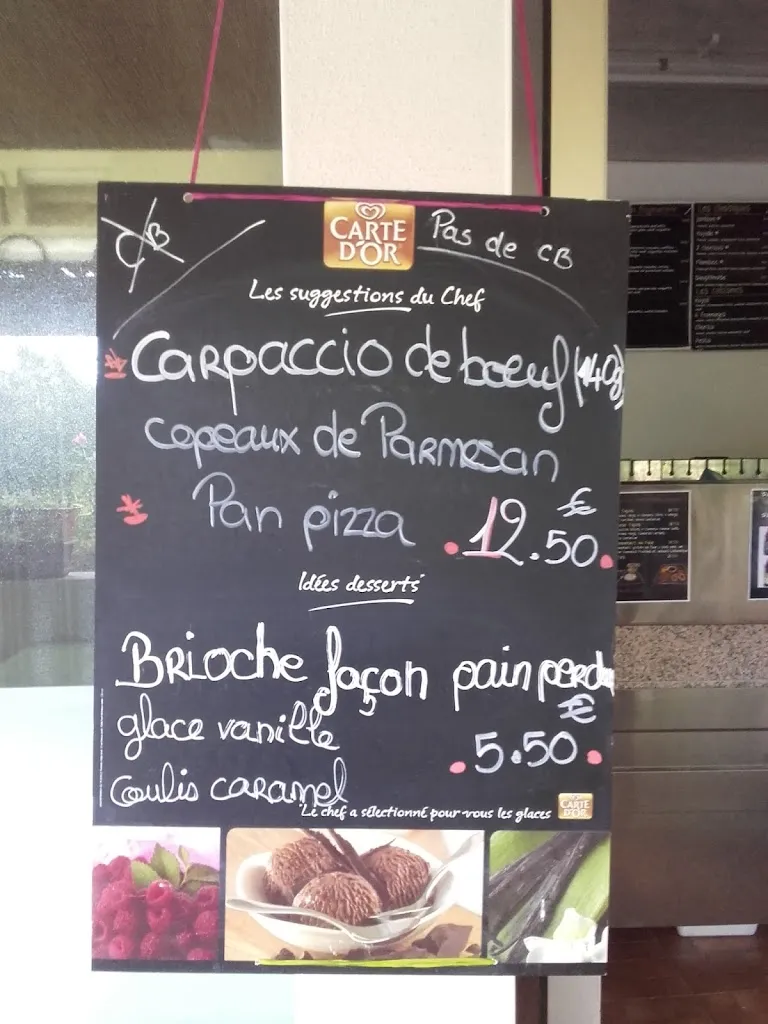 CB
CARTE
D'OR
Pas de CB
Les suggestions du Chef
Carpaccio de boeuf (140g)
copeaux de Parmesan
Pan pizza 12.50 €
Idées desserts
Brioche façon pain perdu
glace vanille
coulis caramel 5.50 €
Le chef a sélectionné pour vous les glaces
CARTE
D'OR